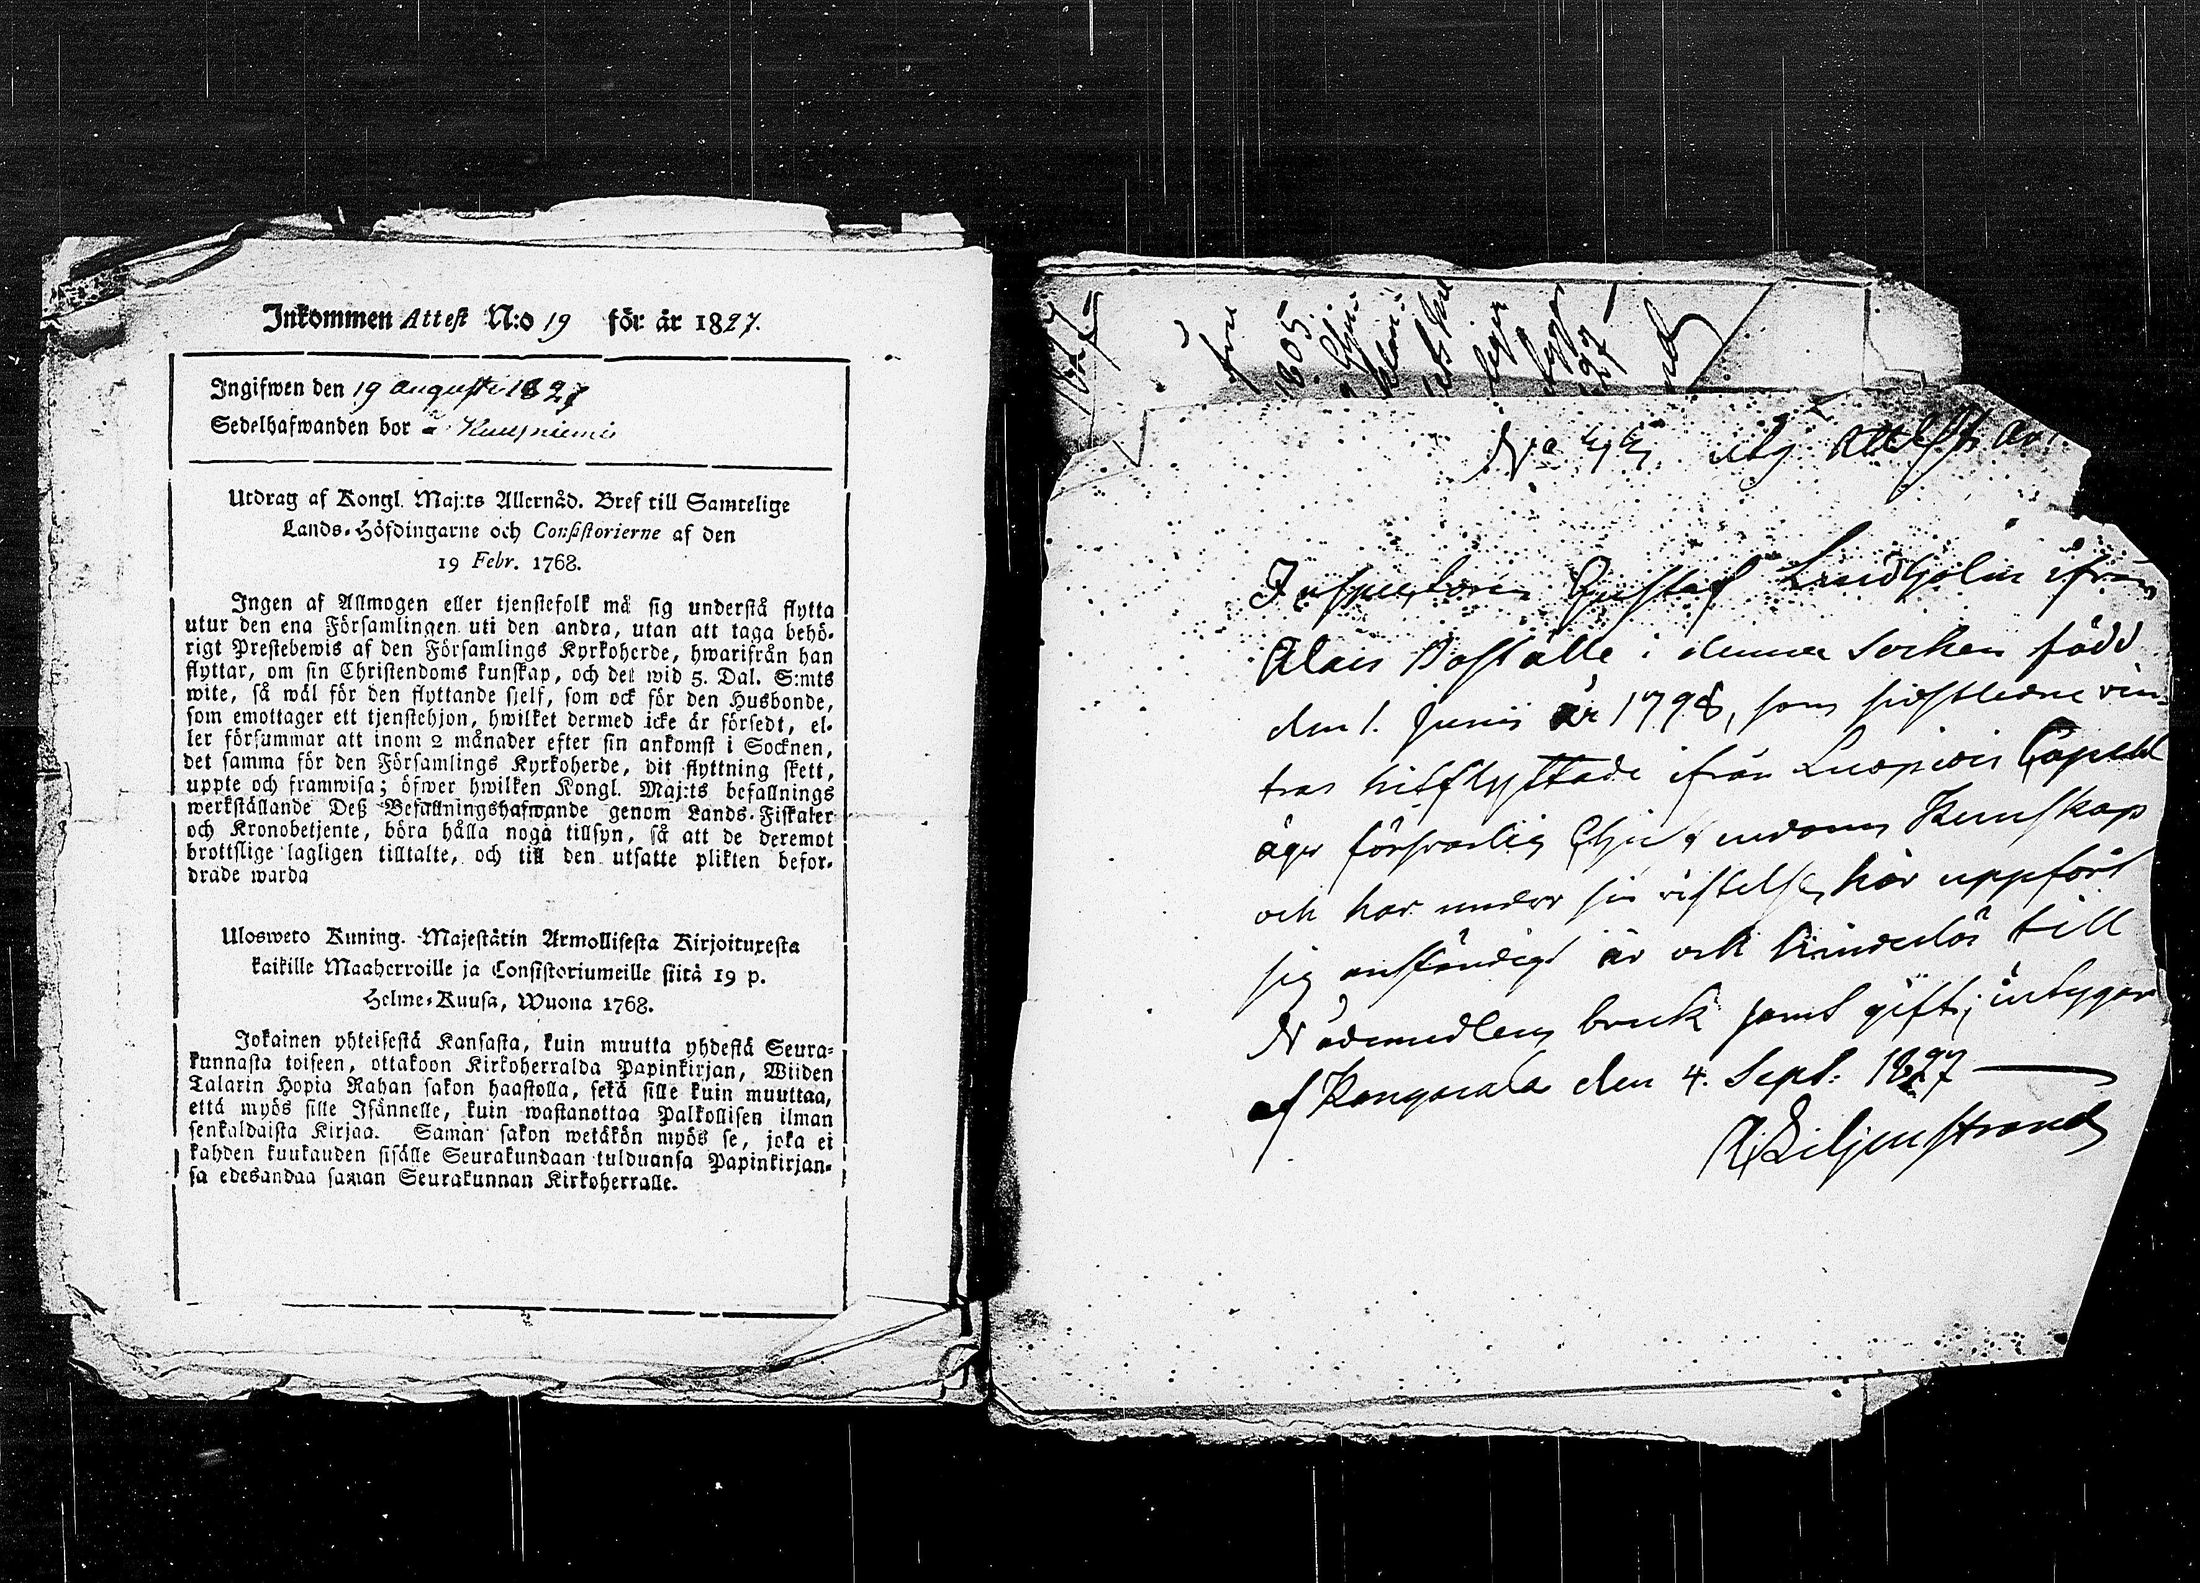 Inkommen Attest N:o 19 för år 1827.
Ingifwen den 19 augusti 1827
Sedelhafwanden bor å
Utdrag af Kongl. Maj:ts Allernåd. Bref till Samtelige
Lands-Höfdingarne och Consistorierne af den
19 Febr. 1768.
Ingen af Allmogen eller tjenstefolk må sig understå flytta
utur den ena Församlingen uti den andra, utan att taga behö-
rigt Prestebewis af den Församlings Kyrkoherde, hwarifrån han
flyttar, om sin Christendoms kunskap, och det wid 5. Dal. S:mts
wite, så wäl för den flyttande sjelf, som ock för den Husbonde,
som emottager ett tjenstehjon, hwilket dermed icke är försedt, el-
ler försummar att inom 2 månader efter sin ankomst i Socknen,
det samma för den Församlings Kyrkoherde, dit flyttning skett,
uppte och framwisa; öfwer hwilken Kongl. Maj:ts befallnings
werkställande Deß Befallningshafwande genom Lands-Fiskaler
och Kronobetjente, böra hålla noga tillsyn, så att de deremot
brottslige lagligen tilltalte, och till den utsatte plikten befor-
drade warda
Ulosweto Kuning. Majestätin Armollisesta Kirjoituxesta
kaikille Maaherroille ja Consistoriumeille siitä 19 p.
Helme-Kuusa, Wuona 1768.
Jokainen yhteisestä Kansasta, kuin muutta yhdestä Seura-
kunnasta toiseen, ottakoon Kirkoherralda Papinkirjan, Wiiden
Talarin Hopia Rahan sakon haastolla, sekä sille kuin muuttaa,
että myös sille Isännelle, kuin wastanottaa Palkollisen ilman
senkaldaista Kirjaa. Saman sakon wetäkön myös se, joka ei
kahden kuukauden sisälle Seurakundaan tulduansa Papinkirjan-
sa edesandaa saman Seurakunnan Kirkoherralle.
1805
N:o utg Attest
Inspectoren Gustaf Lindholm ifrån
Boställe i denna Socken född
den 1. Junii år 1798, som sistledne vin-
ter hitflyttade ifrån Capell
äger försvarlig Christendoms Kunskap
och har under sin vistelse här uppfört
sig anständigt är och hinderlös till
Nådemedlens bruk samt gifte; intygar
af Kangasala den 4. Sept: 1827
Liljenstrand